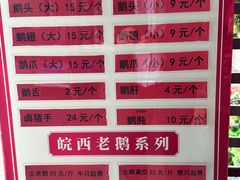 鹅头（大）15元/个 鹅头（小）9元/个
鹅翅（大）15元/个 鹅翅（小）9元/个
鹅爪（大）15元/个 鹅爪（小）9元/个
鹅舌 2元/个 鹅肝 4元/个
卤猪手 24元/个 鹅肫 10元/个
皖西老鹅系列
土老鹅50元/斤 半只起售 土鹅真空52元/斤 整只起售